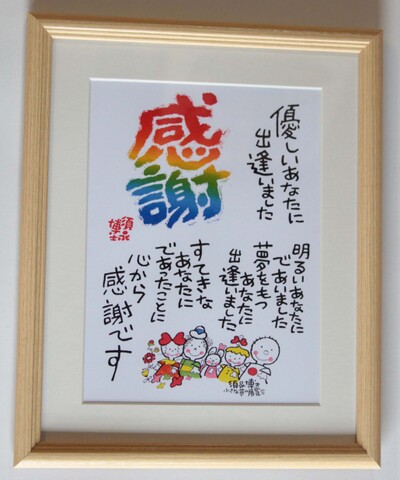 感謝
優しいあなたに
出逢いました
明るいあなたに
であいました
夢をもつ
あなたに
出逢いました
すてきな
あなたに
であったことに
心から
感謝です